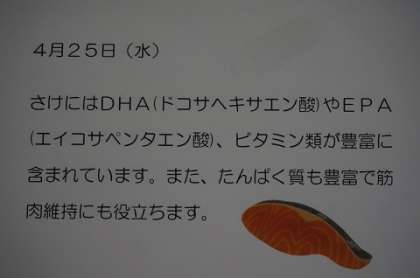 ４月２５日（水）
さけにはＤＨＡ(ドコサヘキサエン酸)やＥＰＡ
(エイコサペンタエン酸)、ビタミン類が豊富に
含まれています。また、たんぱく質も豊富で筋
肉維持にも役立ちます。